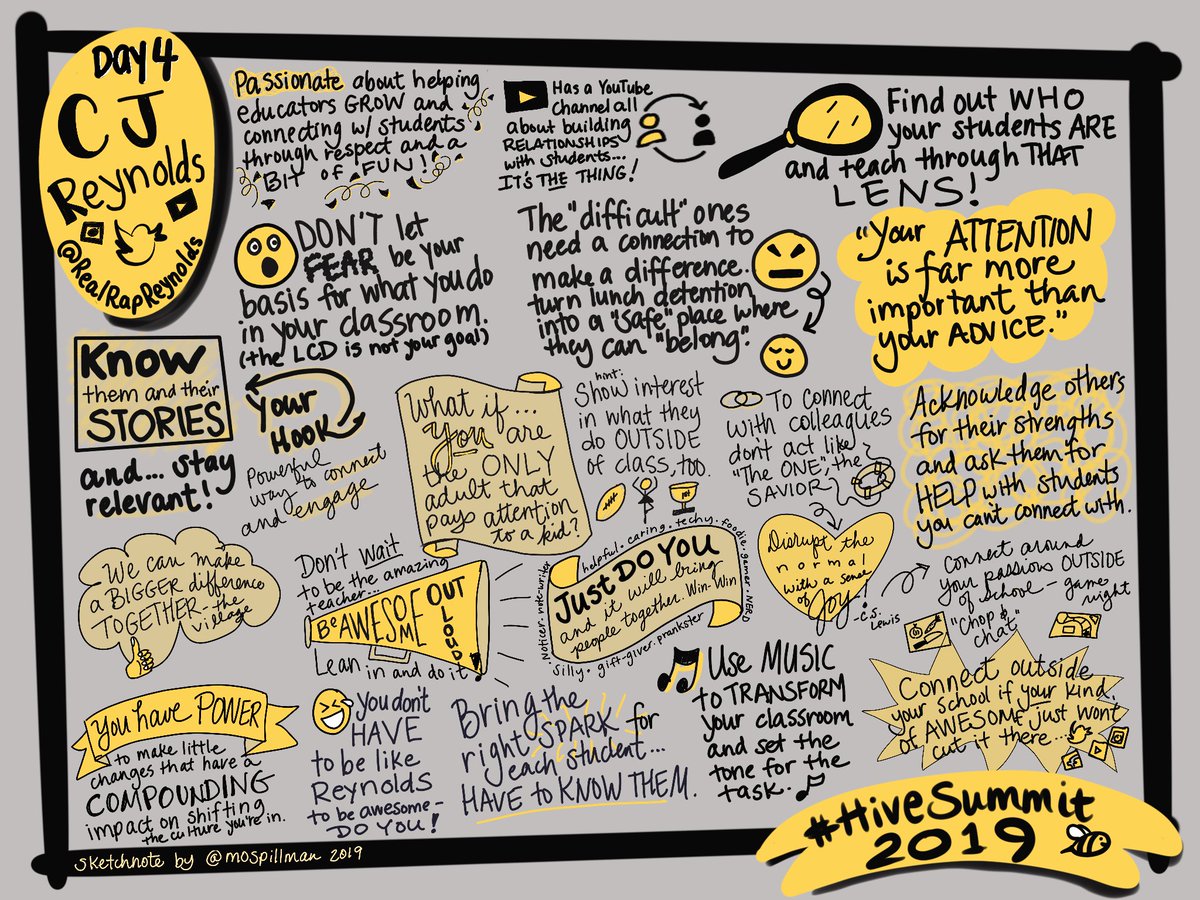 Day 4
CJ
Reynolds
@RealRapReynolds
Passionate about helping
educators GROW and
connecting w/ students
through respect and a
BIT of FUN!
Has a YouTube
Channel all
about building
RELATIONSHIPS
with students...
IT'S THE THING!
Find out WHO
your students ARE
and teach through THAT
LENS!
DON'T let
FEAR be your
basis for what you do
in your classroom.
(the LCD is not your goal)
The "difficult" ones
need a connection to
make a difference.
turn lunch detention
into a "safe" place where
they can "belong".
"Your ATTENTION
is far more
important than
your ADVICE."
Know
them and their
STORIES
and... stay
relevant!
Your
HOOK
Powerful
way to connect
and engage
What if...
You are
the ONLY
adult that
pays attention
to a kid?
hint:
Show interest
in what they
do OUTSIDE
of class, too.
To connect
with colleagues
don't act like
"The ONE", the
SAVIOR
Acknowledge others
for their strengths
and ask them for
HELP with students
you can't connect with.
We can make
a BIGGER difference
TOGETHER - the
village
Don't Wait
to be the amazing
teacher...
Be AWESOME OUT
LOUD
Lean in and do it!
helpful. caring. techy. foodie. gamer. NERD
Noticer. note-writer
Just DO YOU
and it will bring
people together. Win-Win
Silly. gift-giver. prankster
Disrupt the
normal
with a sense
of Joy!
-C.S.
Lewis
Connect around
your passions OUTSIDE
of School - game
night
"Chop &
chat"
You have POWER
to make little
changes that have a
COMPOUNDING
impact on shifting
the culture you're in.
you don't
HAVE
to be like
Reynolds
to be awesome-
DO YOU!
Bring the
right SPARK for
each student...
HAVE to KNOW THEM.
Use MUSIC
to TRANSFORM
your classroom
and set the
tone for the
task.
Connect outside
your school if your kind
of AWESOME just wont
cut it there...
#HiveSummit
2019
sketchnote by @mospillman 2019